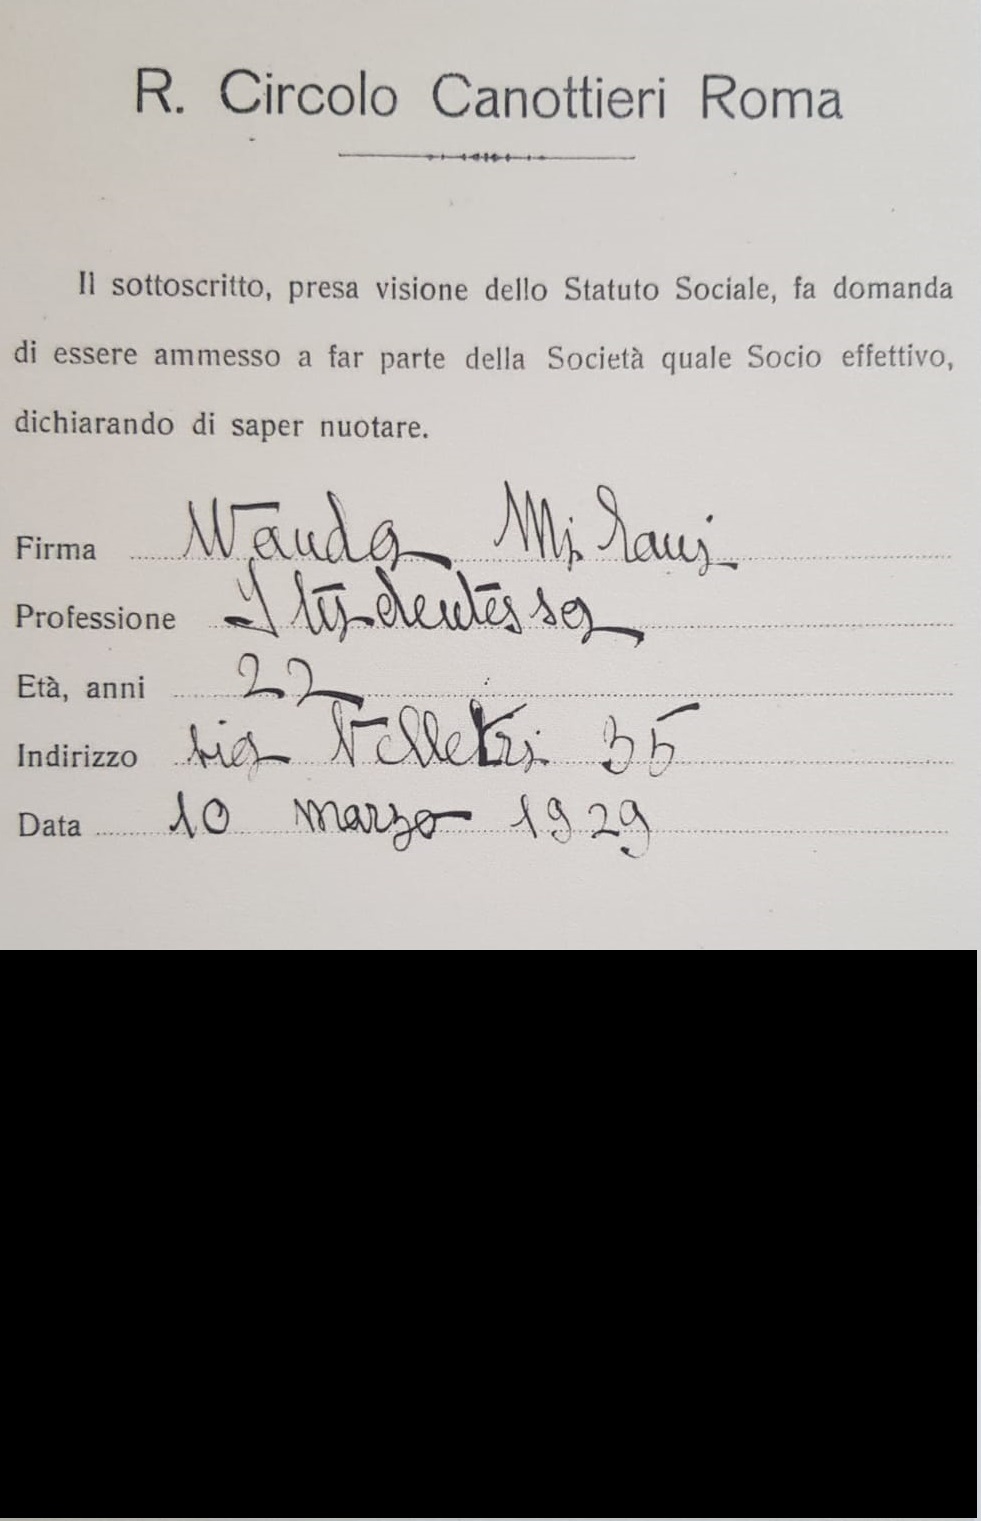 R. Circolo Canottieri Roma
Il sottoscritto, presa visione dello Statuto Sociale, fa domanda
di essere ammesso a far parte della Società quale Socio effettivo,
dichiarando di saper nuotare.
Firma Wanda Milani
Professione Studentessa
Età, anni 22
Indirizzo via Velletri 35
Data 10 marzo 1929